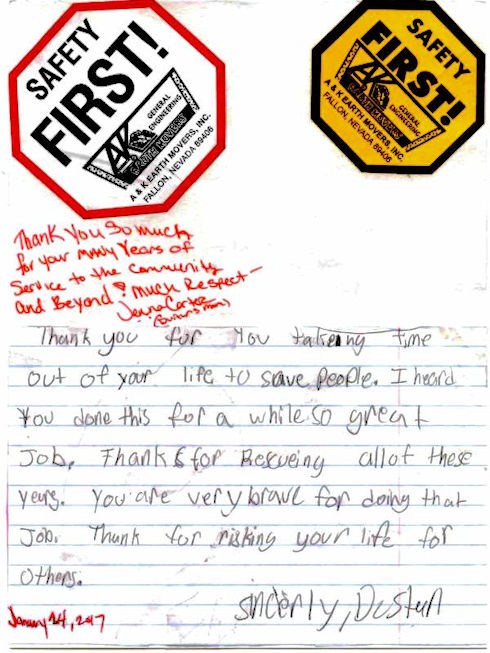 SAFETY
FIRST!
AK
GENERAL
ENGINEERING
EARTH MOVERS
A & K EARTH MOVERS, INC.
FALLON, NEVADA 89406
SAFETY
FIRST!
AK
GENERAL
ENGINEERING
EARTH MOVERS
A & K EARTH MOVERS, INC.
FALLON, NEVADA 89406
Thank you so much
for your many years of
Service to the Community
and Beyond! Much Respect –
Thank you for You takeing time
out of your life to save People. I heard
You done this for a while so great
Job. Thanks for Rescueing all of these
years. You are very brave for doing that
Job. Thank for risking your life for
others.
sincerly, Dusten
January 24, 2017